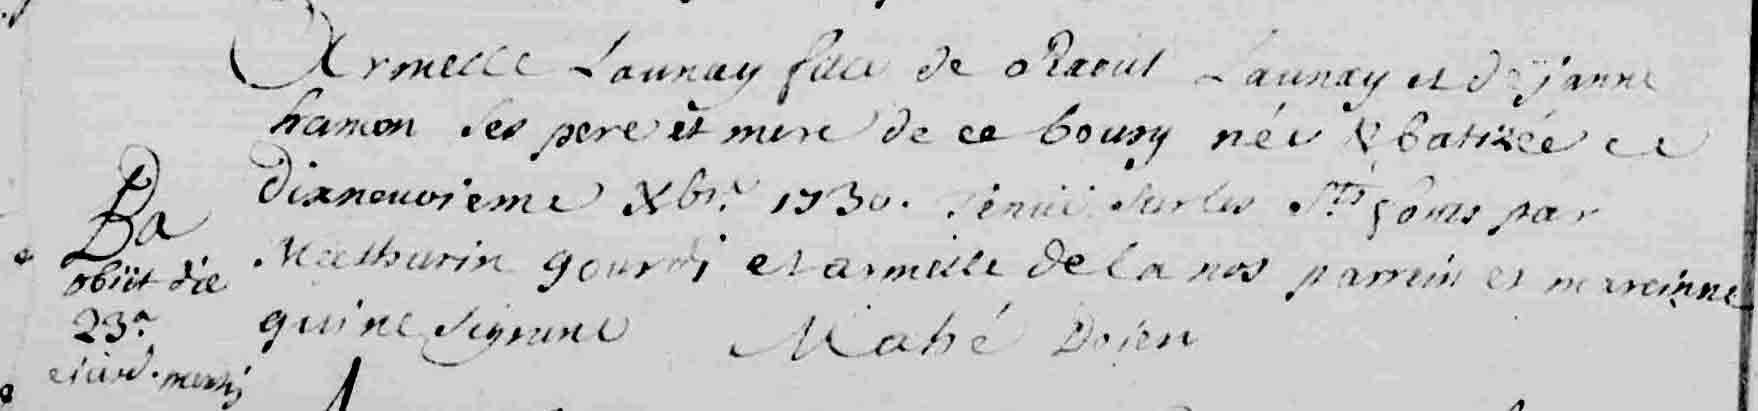 Armelle Launay fille de Raoul Launay et de janne
hamon ses pere et mere de ce bourg née & batizée ce
dixneuvieme Xbre 1730. tenue sur les Sts fonts par
Mathurin gourdi et armelle de la nos parrein et marreinne
qui ne signent Mahé Doien
Ba
obiit die
23a
eiusd. mensis